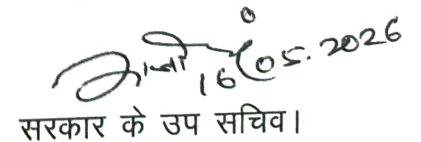 16/05.2026
सरकार के उप सचिव।